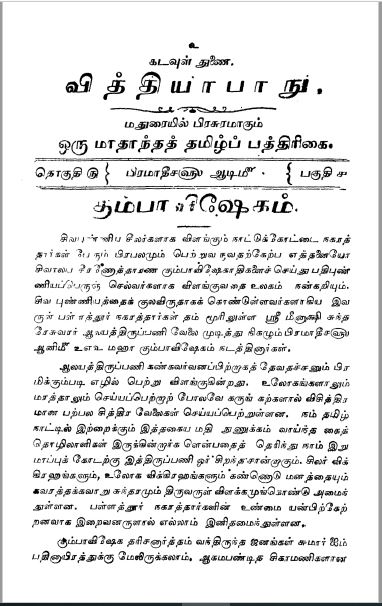 உ
கடவுள் துணை.
வித்தியாபாநு.
மதுரையில் பிரசுரமாகும்
ஒரு மாதாந்தத் தமிழ்ப் பத்திரிகை.
தொகுதி ௫ } பிரமாதீசஹ ஆடிமீ { பகுதி ௪
கும்பாபிஷேகம்.
சிவபுண்ணிய சீலர்களாக விளங்கும் நாட்டுக்கோட்டை நகரத்
தார்கள் பேரும் பிரபலமும் பெற்று வருவதற்கேற்ப எத்தனையோ
சிவாலய ஜீரணோத்தாரண கும்பாபிஷேகாதிகளைச் செய்து பதிபுண்
ணியப்பெருஞ் செல்வர்களாக விளங்குவதை உலகம் நன்கறியும்.
சிவ புண்ணியத்தைக் குலவிருதாகக் கொண்டுள்ளவர்களாகிய இவ
ருள் பள்ளத்தூர் நகரத்தார்கள் தம் மூரிலுள்ள ஸ்ரீ மீனாக்ஷி சுந்த
ரேசுவரர் ஆலயத்திருப்பணி வேலை முடித்து நிகழும் பிரமாதீசஹ
ஆனிமீ மஹா கும்பாபிஷேகம் நடத்தினார்கள்.
ஆலயத்திருப்பணி கண்கவர்வனப்பிற்றாகத் தேவதச்சனும் பிர
மிக்கும்படி எழில் பெற்று விளங்குகின்றது. உலோகங்களாலும்
மரத்தாலும் செய்யப்பெற்றாற் போலவே கருங் கற்களால் விசித்திர
மான பற்பல சித்திர வேலைகள் செய்யப்பெற்றுள்ளன. நம் தமிழ்
நாட்டில் இற்றைக்கும் இத்தகைய மதி நுணுக்கம் வாய்ந்த கைத்
தொழிலாளிகள் இருக்கின்றார்க ளென்பதைத் தெரிந்து நாம் இறு
மாப்புக் கோடற்கு இத்திருப்பணி ஓர் சிறந்தசான்றாகும். சிலா விக்
கிரஹங்களும், உலோக விக்கிரஹங்களும் கண்ணெடு மனத்தையும்
கவரத்தக்கவாறு சுந்தரமும் திருவருள் விளக்கமுங்கொண்டு அமைந்
துள்ளன. பள்ளத்தூர் நகரத்தார்களின் உண்மை யன்பிற்கேற்
றனவாக இறைவனருளால் எல்லாம் இனிதமைந்துள்ளன.
கும்பாபிஷேக தரிசனார்த்தம் வந்திருந்த ஜனங்கள் சுமார் ஐம்
பதினாயிரத்துக்கு மேலிருக்கலாம். ஆகமபண்டித சிகாமணிகளான